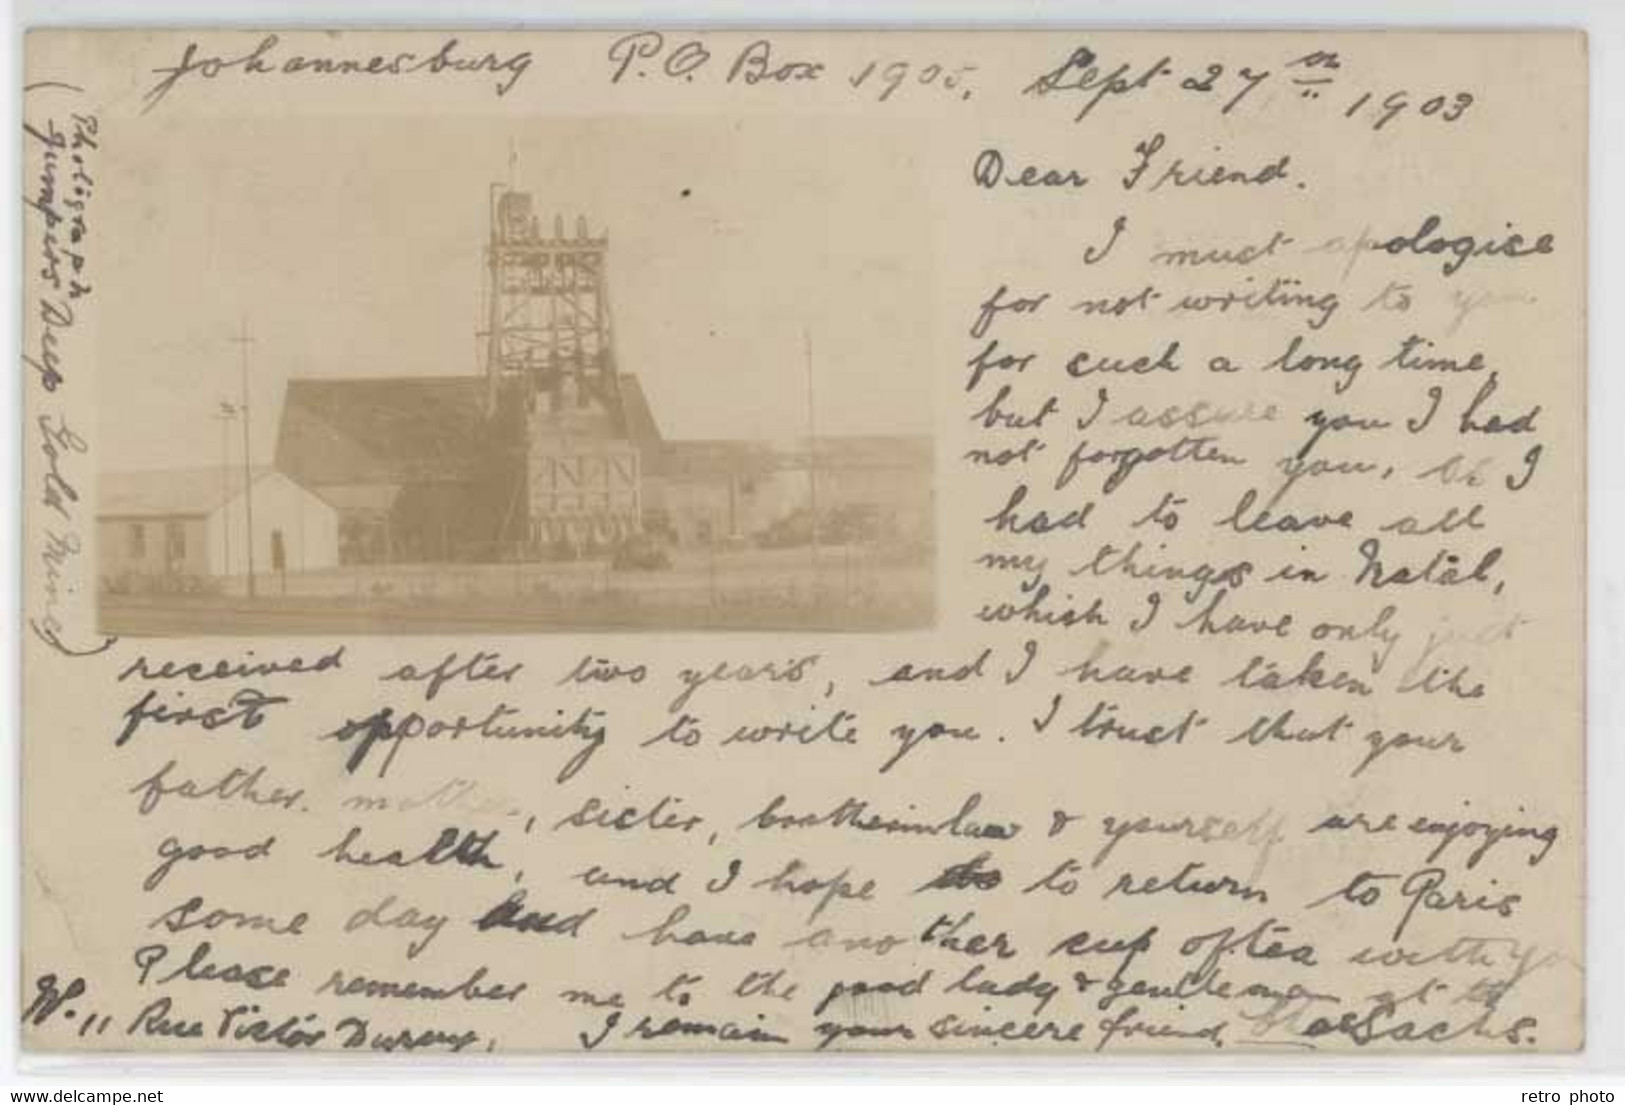 Johannesburg P.O. Box 1905, Sept 27th 1903
(Photograph
Jumpers Deep Gold Mine)
Dear Friend.
I must apologise
for not writing to you
for such a long time,
but I assure you I had
not forgotten you, I
had to leave all
my things in Natal,
which I have only just
received after two years, and I have taken the
first opportunity to write you. I trust that your
father, mother, sister, brotherinlaw & yourself are enjoying
good health, and I hope to return to Paris
some day and have another cup of tea with you
Please remember me to the good lady & gentleman at the
11 Rue Victor Duruy, I remain your sincere friend, Sachs.
delcampe.net
retro_photo